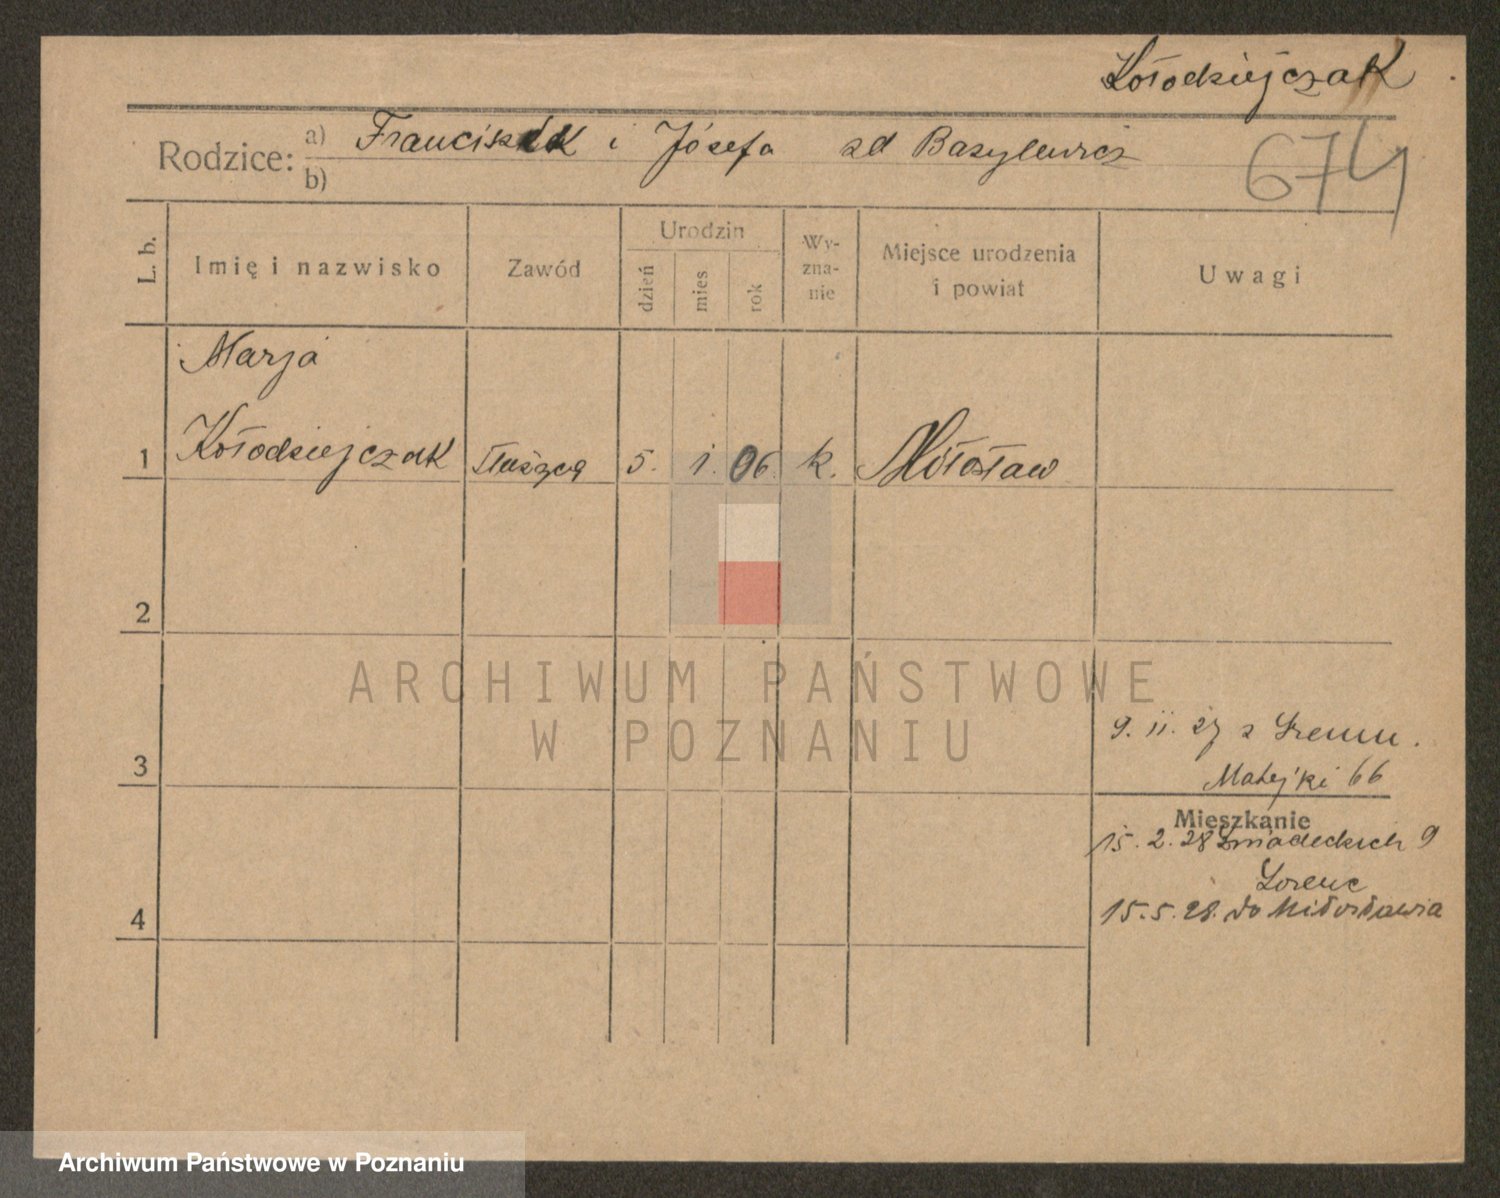 Kołodziejczak
Rodzice: a) Franciszek i Józefa zd Bazylewicz
b)
674
L. b.
Imię i nazwisko
Zawód
Urodzin
dzień
mies
rok
Wy-
zna-
nie
Miejsce urodzenia
i powiat
Uwagi
Marja
1 Kołodziejczak Służąca 5. 1. 06. k. Miłosław
2
3
9. 11. 27 z Śremu.
Matejki 66
Mieszkanie
15. 2. 28 Śniadeckich 9
Lorenc
4
15. 5. 28. do Miłosławia
ARCHIWUM PAŃSTWOWE
W POZNANIU
Archiwum Państwowe w Poznaniu